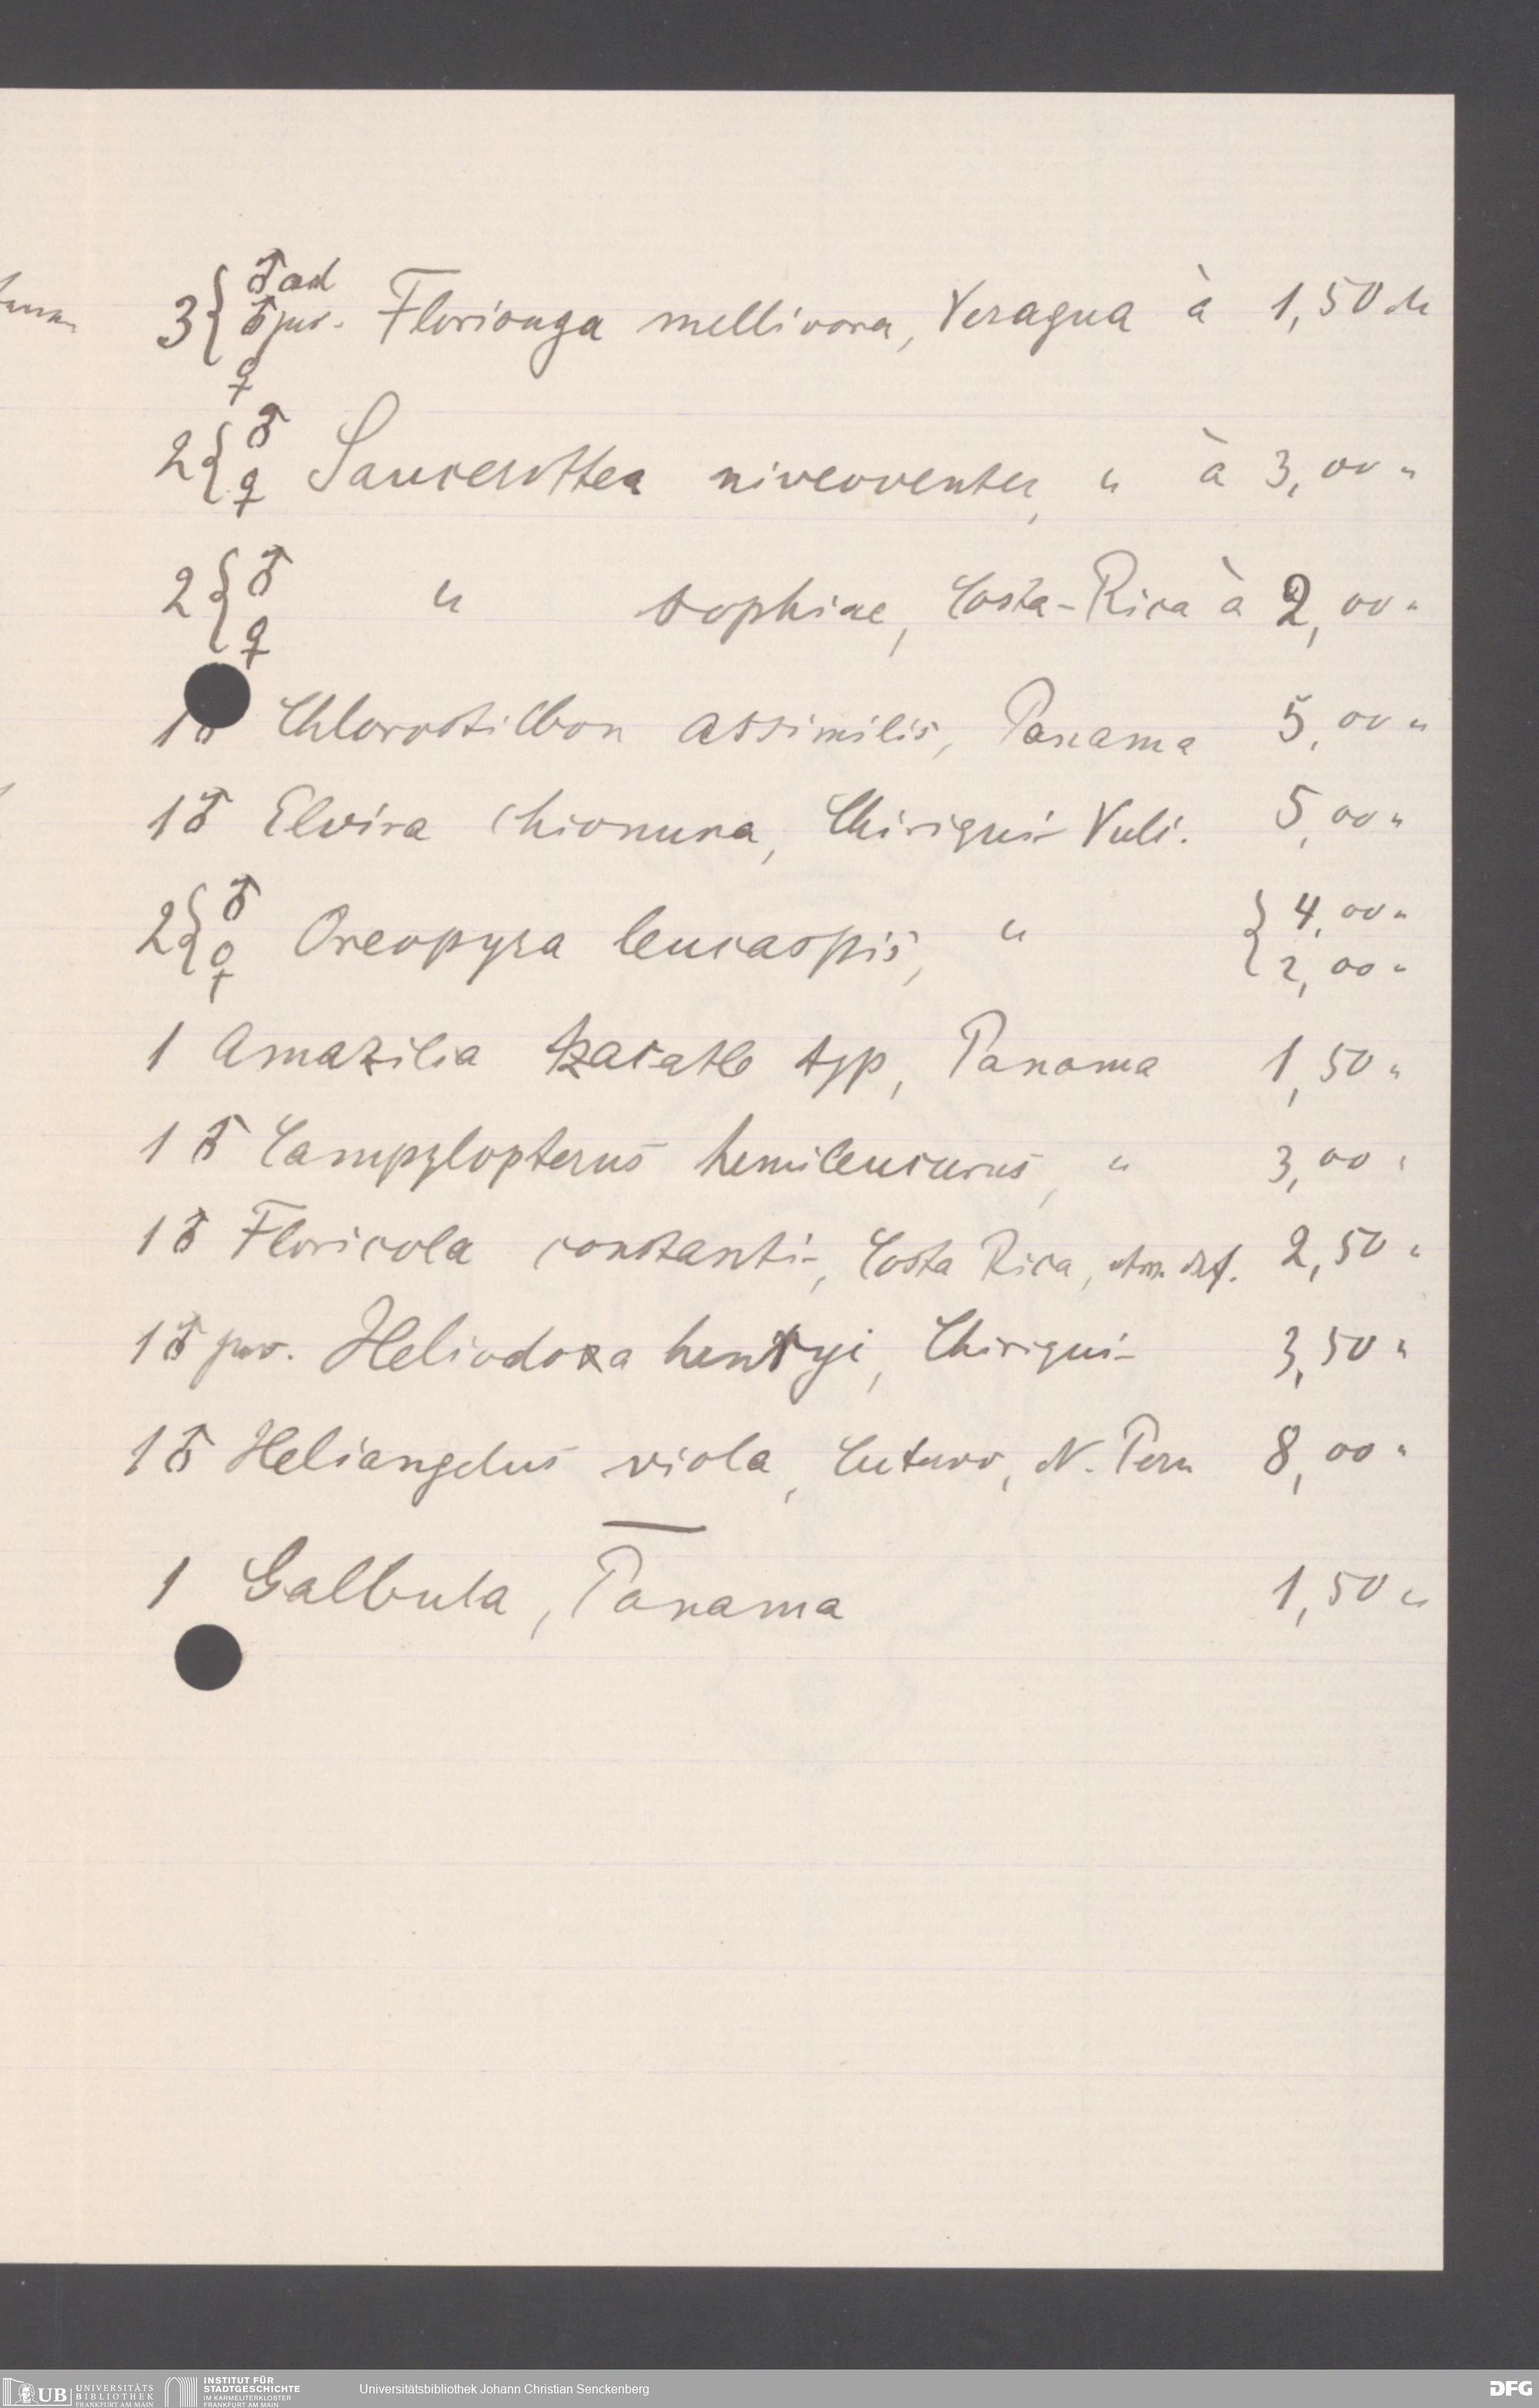 ♂ ad
3 { ♂ juv. Florisuga mellivora, Veragua à 1,50 M
♀
2 { ♂ ♀ Saucerottea niveoventer, " à 3,00 "
2 { ♂ ♀ " sophiae, Costa-Rica à 2,00 "
1 ♂ Chlorostilbon assimilis, Panama 5,00 "
1 ♂ Elvira chionura, Chiriqui Vulc. 5,00 "
2 { ♂ ♀ Oreopyra leucaspis, " { 4,00 "
2,00 "
1 Amazilia tzacatl typ, Panama 1,50 "
1 ♂ Campylopterus hemileucurus, " 3,00 "
1 ♂ Floricola constanti, Costa Rica, etw. def. 2,50 "
1 ♂ juv. Heliodoxa henryi, Chiriqui 3,50 "
1 ♂ Heliangelus viola, Cutervo, N. Peru 8,00 "
1 Galbula, Panama 1,50 "
UB UNIVERSITÄTS BIBLIOTHEK FRANKFURT AM MAIN
INSTITUT FÜR STADTGESCHICHTE IM KARMELITERKLOSTER FRANKFURT AM MAIN
Universitätsbibliothek Johann Christian Senckenberg
DFG